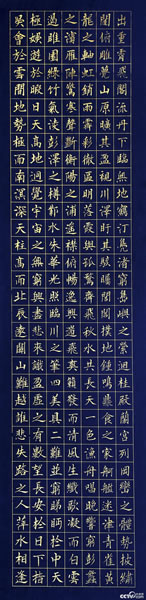 出重霄飛閣流丹下臨無地鶴汀鳧渚窮島嶼之縈迴桂殿蘭宮列岡巒之體勢披繡
闥俯雕甍山原曠其盈視川澤盱其駭矚閭閻撲地鐘鳴鼎食之家舸艦迷津青雀黃
龍之軸虹銷雨霽彩徹區明落霞與孤鶩齊飛秋水共長天一色漁舟唱晚響窮彭蠡
之濱雁陣驚寒聲斷衡陽之浦遙襟俯暢逸興遄飛爽籟發而清風生纖歌凝而白雲
遏睢園綠竹氣凌彭澤之樽鄴水朱華光照臨川之筆四美具二難並窮睇眄於中天
極娛遊於暇日天高地迥覺宇宙之無窮興盡悲來識盈虛之有數望長安於日下指
吳會於雲間地勢極而南溟深天柱高而北辰遠關山難越誰悲失路之人萍水相逢